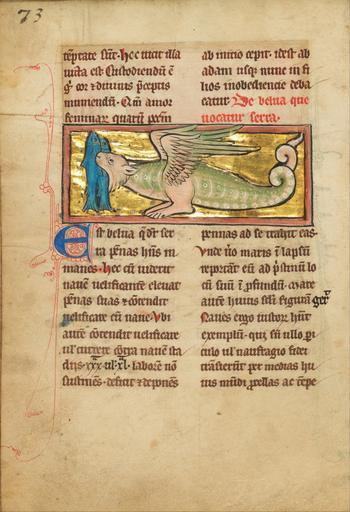 73
temptate sunt. hec vicit illa
victa est Custodiendum ē
g̃ cor ⁊ diuinis p̄ceptis
muniendū. Qm̄ amor
ab initio cepit. idest ab
adam usq; nunc in fi
lios inobediencie deba
catur. De belua que
uocatur serra.
Est belua q̄ dr̄ ser
ra pēnas hñs in
manes. hec cū uiderit
nauē uelificantē eleuat
pēnas suas ⁊ cōtendit
uelificare cū naue. Vbi
autē cōtendit uelificare
ul' currere cōtra nauē sta
diis xxx. ul' xl. laborē nō
sustinēs. deficit ⁊ deponēs
pennas ad se trahit eas.
Vnde ūo maris
reportāt eū ad p̄stinū lo
cū suū ī profundū. mare
autē huius sc̄li figurā gerit
Naues ergo iustor̄ hñt
exemplū. qui sñ ullo p̄i
culo ul' naufragio fidei
transierūt per medias hu
ius mūdi procellas ac tēpe